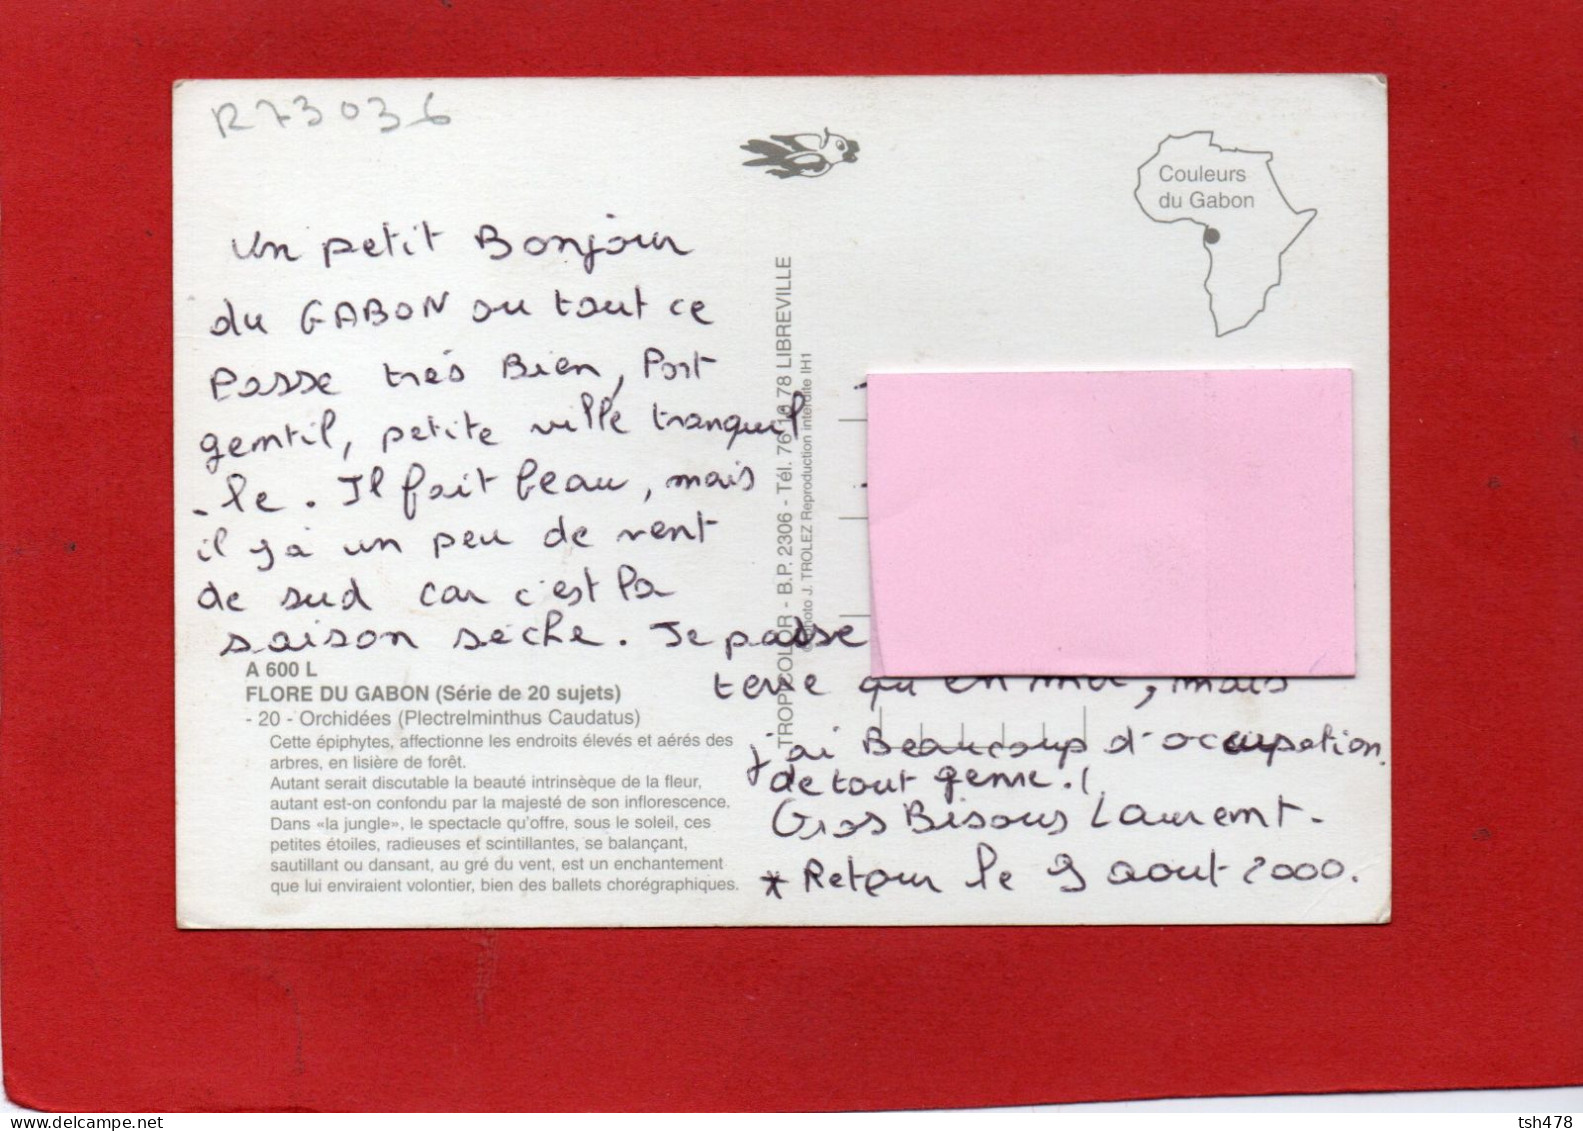 R73036
Couleurs
du Gabon
Un petit Bonjour
du GABON ou tout ce
Passe très Bien, Port
gentil, petite ville tranquil
-le. Il fait beau, mais
il y a un peu de vent
de sud car c'est la
saison sèche. Je passe
terre qu'en mer, mais
j'ai Beaucoup d'occupation
de tout genre.!
Gros Bisous Laurent.
* Retour le 9 aout 2000.
TROPICOLOR - B.P. 2306 - Tél. 76 16 78 LIBREVILLE
Photo J. TROLEZ Reproduction interdite IH1
A 600 L
FLORE DU GABON (Série de 20 sujets)
- 20 - Orchidées (Plectrelminthus Caudatus)
Cette épiphytes, affectionne les endroits élevés et aérés des
arbres, en lisière de forêt.
Autant serait discutable la beauté intrinsèque de la fleur,
autant est-on confondu par la majesté de son inflorescence.
Dans «la jungle», le spectacle qu'offre, sous le soleil, ces
petites étoiles, radieuses et scintillantes, se balançant,
sautillant ou dansant, au gré du vent, est un enchantement
que lui enviraient volontier, bien des ballets chorégraphiques.
tsh478